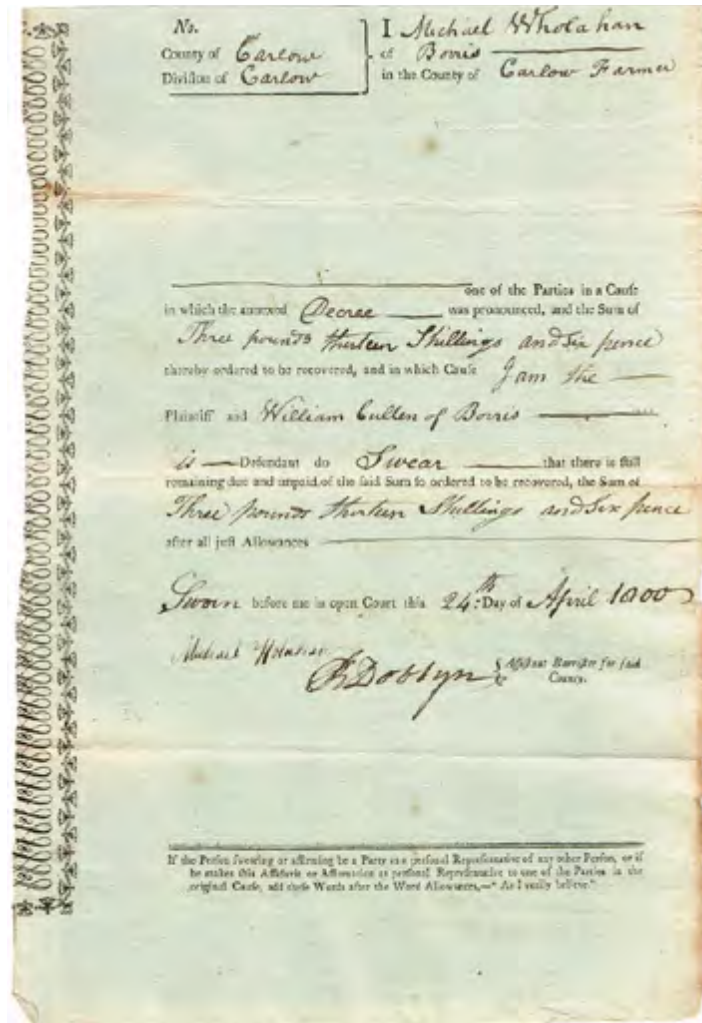 No.
County of Carlow
Division of Carlow
I Michael Wholahan
of Borris
in the County of Carlow Farmer
one of the Parties in a Cause
in which the annexed Decree was pronounced, and the Sum of
Three pounds thirteen Shillings and Six pence
thereby ordered to be recovered, and in which Cause I am the
Plaintiff and William Cullen of Borris
is Defendant do Swear that there is still
remaining due and unpaid, of the said Sum so ordered to be recovered, the Sum of
Three pounds thirteen Shillings and Six pence
after all just Allowances
Sworn before me in open Court this 24th Day of April 1800
Michael
R Dobbyn Assistant Barrister for said
County.
If the Person swearing or affirming be a Party as a personal Representative of any other Person, or if
he makes this Affidavit or Affirmation as personal Representative to one of the Parties in the
original Cause, add these Words after the Word Allowances,—" As I verily believe."